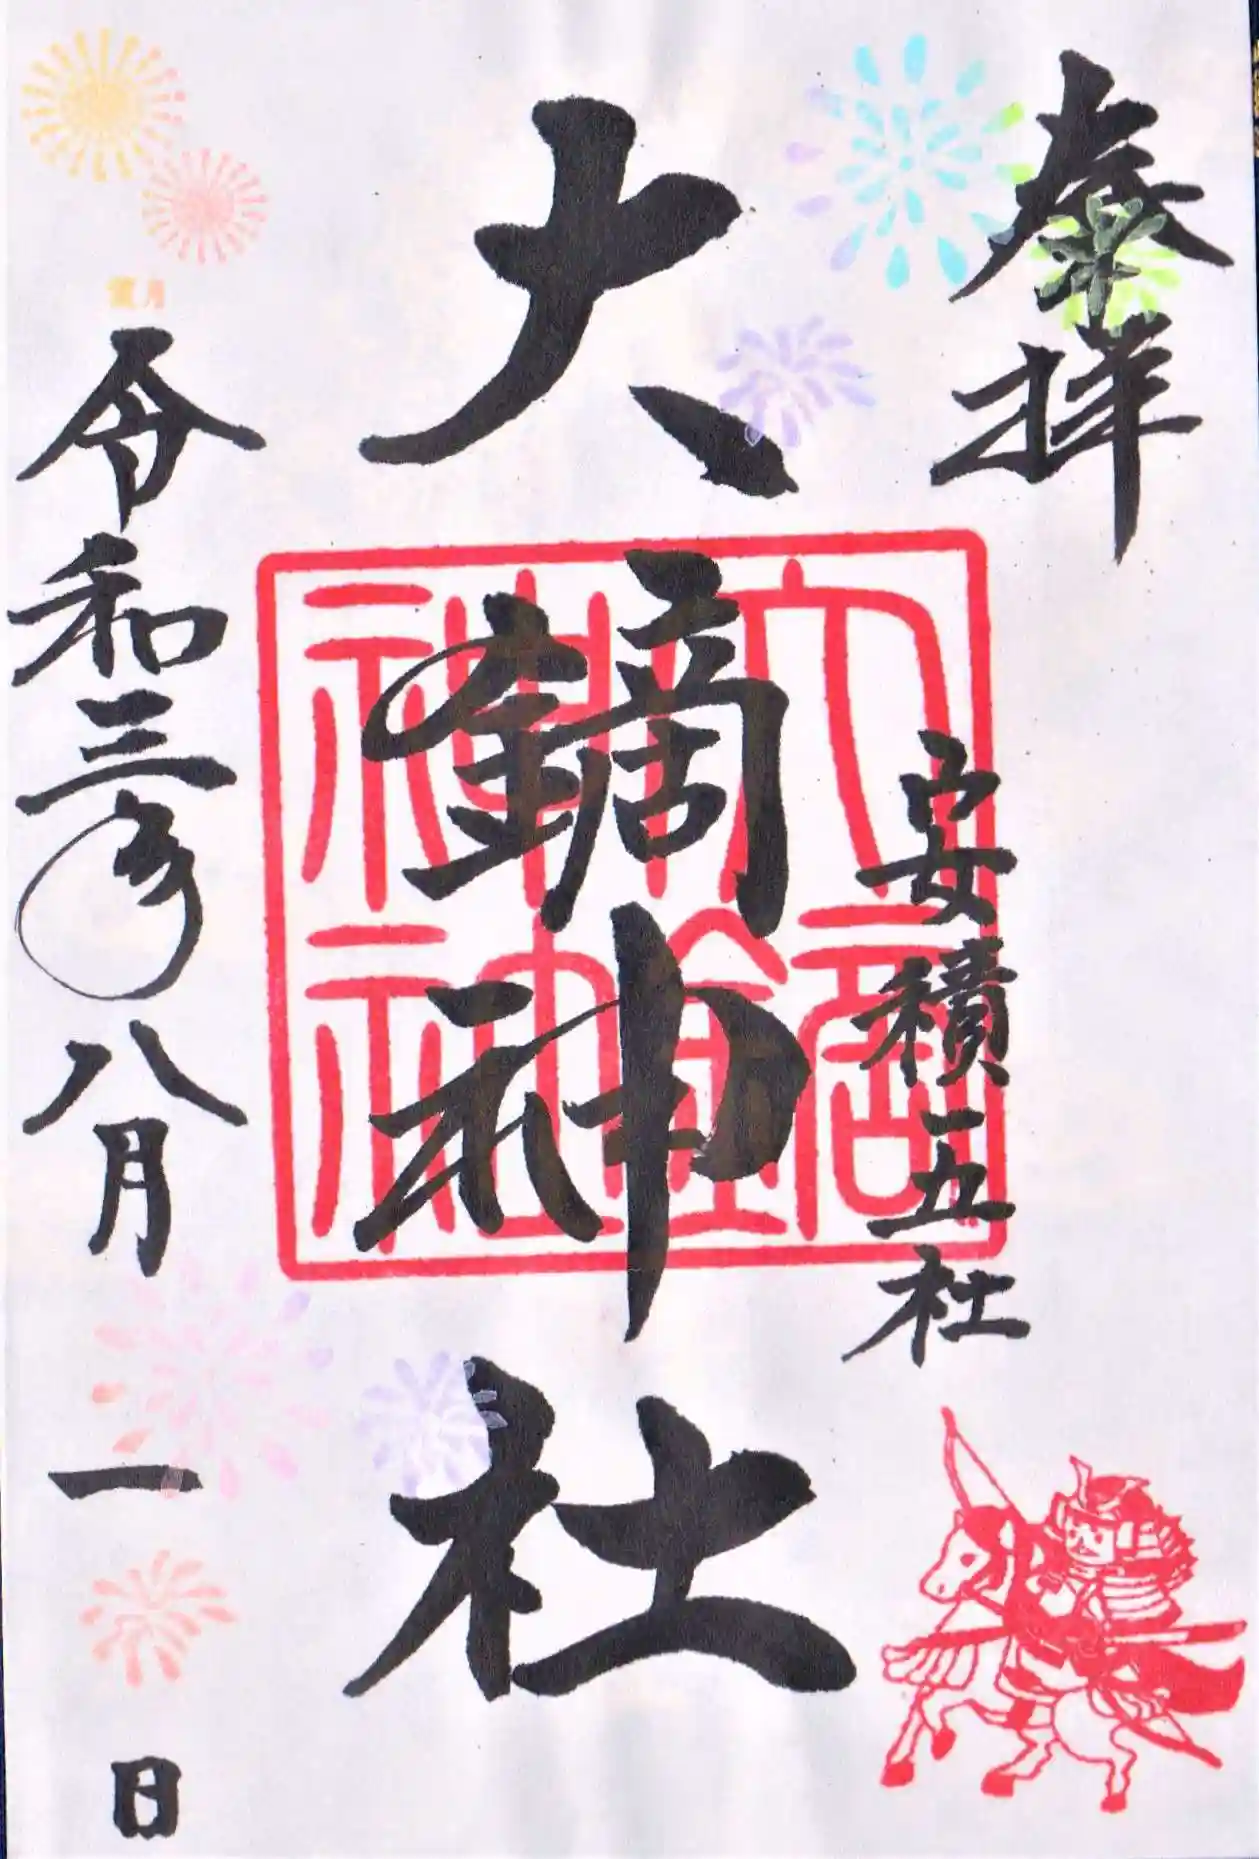 奉拝
安積五社
大鏑神社
大鏑神社
令和三年八月一日